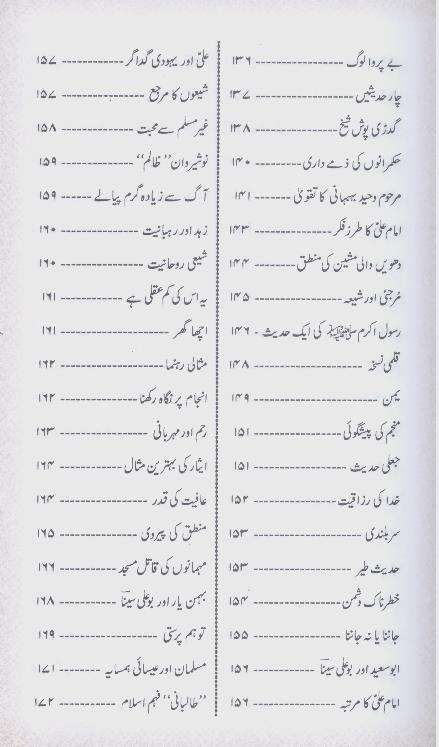 بے پروا لوگ ---------------- ۱۳۶
چار حدیثیں ---------------- ۱۳۷
گدڑی پوش شیخ ---------------- ۱۳۸
حکمرانوں کی ذمے داری ---------------- ۱۴۰
مرحوم وحید بہبہانی کا تقویٰ ------- ۱۴۱
امام علیؑ کا طرز فکر ---------------- ۱۴۳
دھویں والی مشین کی منطق ---------------- ۱۴۴
مُرجئی اور شیعہ ---------------- ۱۴۵
رسول اکرم ﷺ کی ایک حدیث - ۱۴۶
قلمی نسخہ ---------------- ۱۴۸
یمن ---------------- ۱۴۹
منجم کی پیشگوئی ---------------- ۱۵۱
جعلی حدیث ---------------- ۱۵۱
خدا کی رزاقیت ---------------- ۱۵۲
سر بلندی ---------------- ۱۵۳
حدیث طیر ---------------- ۱۵۳
خطرناک دشمن ---------------- ۱۵۴
جاننا یا نہ جاننا ---------------- ۱۵۵
ابو سعید اور بو علی سینا ---------------- ۱۵۶
امام علیؑ کا مرتبہ ---------------- ۱۵۶
علیؑ اور یہودی گداگر ---------------- ۱۵۷
شیعوں کا مرجع ---------------- ۱۵۷
غیر مسلم سے محبت ---------------- ۱۵۸
نوشیروان ’’ظالم‘‘ ---------------- ۱۵۹
آگ سے زیادہ گرم پیالے ------ ۱۵۹
زہد اور رہبانیت ---------------- ۱۶۰
شیعی روحانیت ---------------- ۱۶۰
یہ اس کی کم عقلی ہے ---------------- ۱۶۱
اچھا گھر ---------------- ۱۶۱
مثالی رہنما ---------------- ۱۶۲
انجام پر نگاہ رکھنا ---------------- ۱۶۲
رحم اور مہربانی ---------------- ۱۶۳
ایثار کی بہترین مثال ---------------- ۱۶۴
عافیت کی قدر ---------------- ۱۶۴
منطق کی پیروی ---------------- ۱۶۵
مہمانوں کی قاتل مسجد ---------------- ۱۶۶
بہمن یار اور بو علی سینا ---------------- ۱۶۸
توہم پرستی ---------------- ۱۶۹
مسلمان اور عیسائی ہمسایہ ---------------- ۱۷۱
’’طالبانی‘‘ فہم اسلام ---------------- ۱۷۲